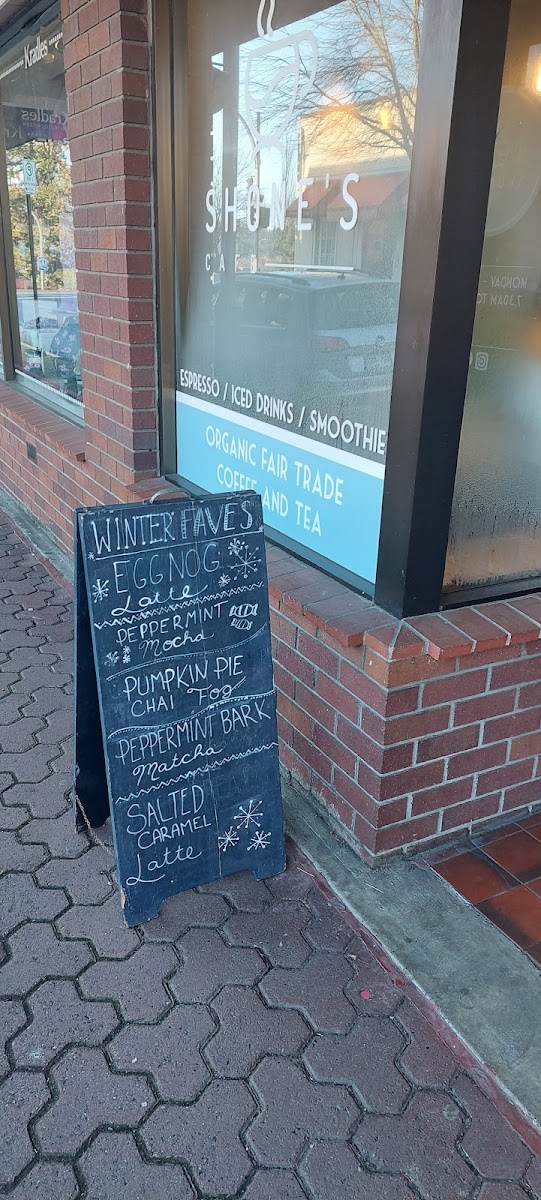 Kradles
SHONE'S
CAFE
ESPRESSO / ICED DRINKS / SMOOTHIE
ORGANIC FAIR TRADE
COFFEE AND TEA
MONDAY -
7:30AM TO
WINTER FAVES
EGGNOG
Latte
PEPPERMINT
Mocha
PUMPKIN PIE
CHAI Fog
PEPPERMINT BARK
Matcha
SALTED
CARAMEL
Latte